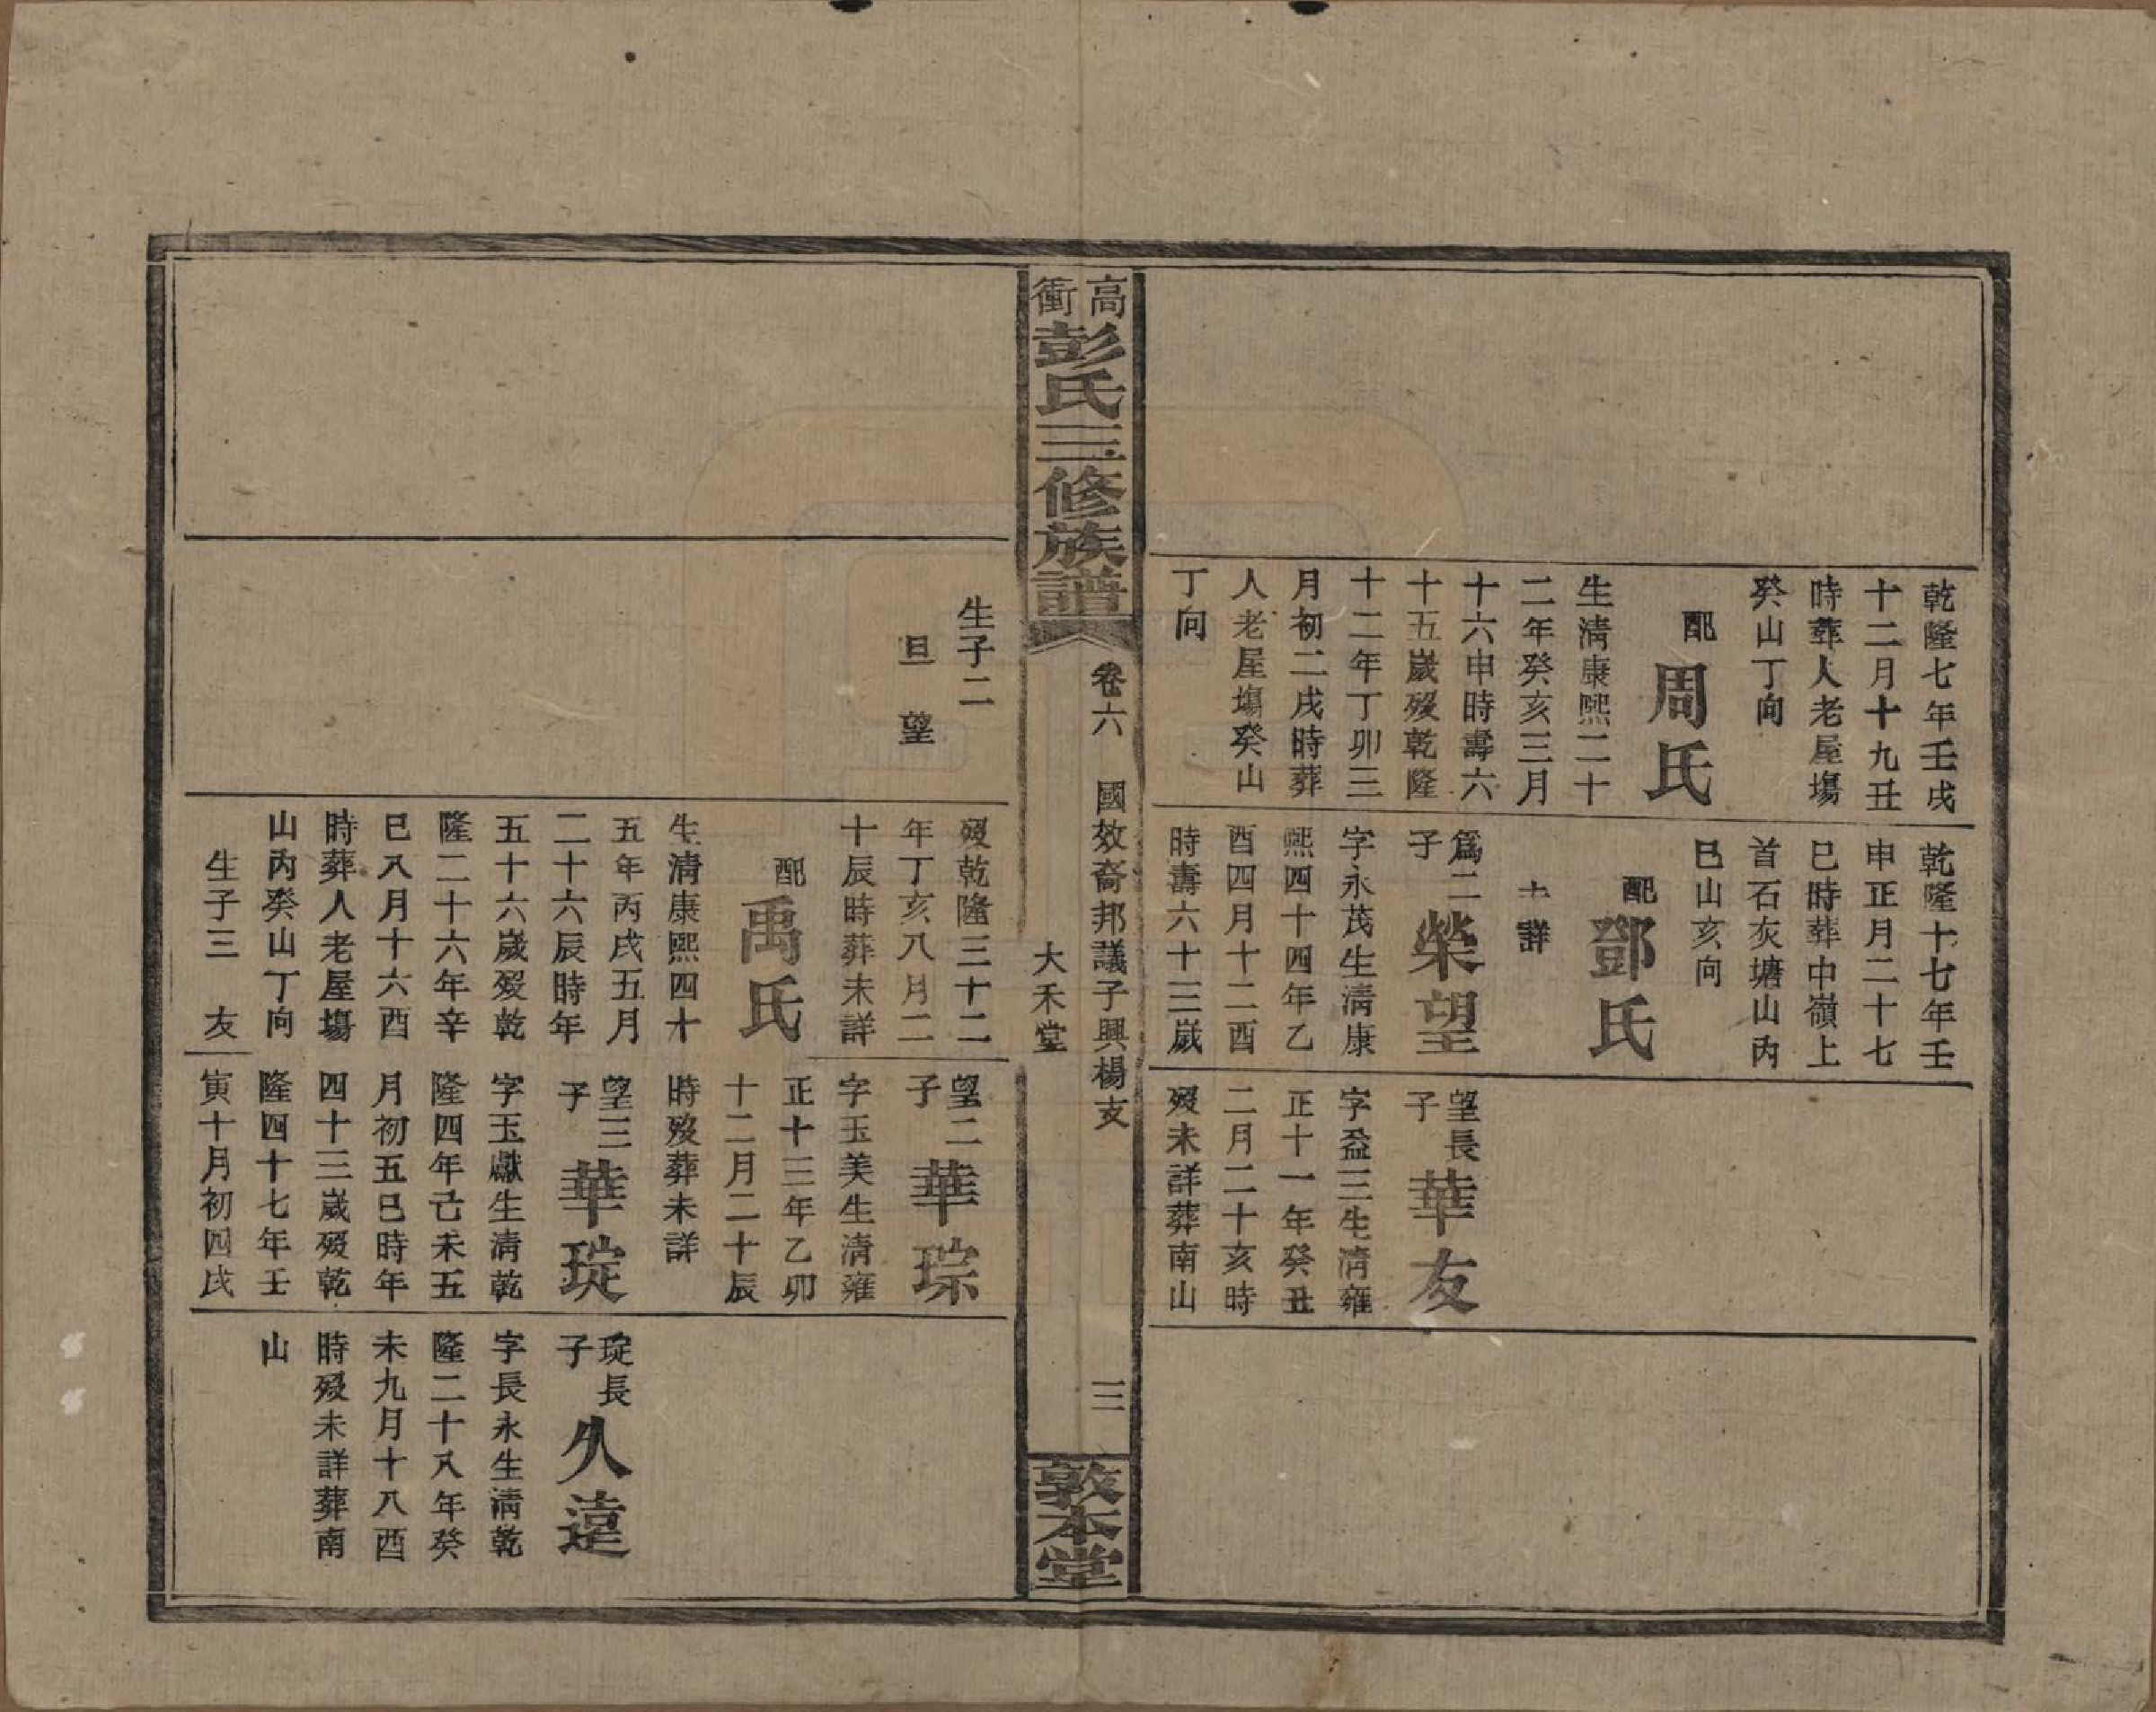 乾隆七年壬戌
十二月十九丑
時葬人老屋塲
癸山丁向
配周氏
生淸康熙二十
二年癸亥三月
十六申時壽六
十五歲殁乾隆
十二年丁卯三
月初二戌時葬
人老屋塲癸山
丁向
乾隆十七年壬
申正月二十七
巳時葬中嶺上
首石灰塘山丙
巳山亥向
配鄧氏
詳
爲二子榮望
字永茂生淸康
熙四十四年乙
酉四月十二酉
時壽六十三歲
望長子華友
字益三生淸雍
正十一年癸丑
二月二十亥時
殁未詳葬南山
高衝彭氏三修族譜
卷六
國效裔邦議子興楊支
大禾堂
三
敦本堂
生子二
旦 望
殁乾隆三十二
年丁亥八月二
十辰時葬未詳
配禹氏
生淸康熙四十
五年丙戌五月
二十六辰時年
五十六歲殁乾
隆二十六年辛
巳八月十六酉
時葬人老屋塲
山丙癸山丁向
生子三 友
望二子華琮
字玉美生淸雍
正十三年乙卯
十二月二十辰
時殁葬未詳
望三子華琔
字玉獻生淸乾
隆四年己未五
月初五巳時年
四十三歲殁乾
隆四十七年壬
寅十月初四戌
琔長子久遠
字長永生淸乾
隆二十八年癸
未九月十八酉
時殁未詳葬南
山